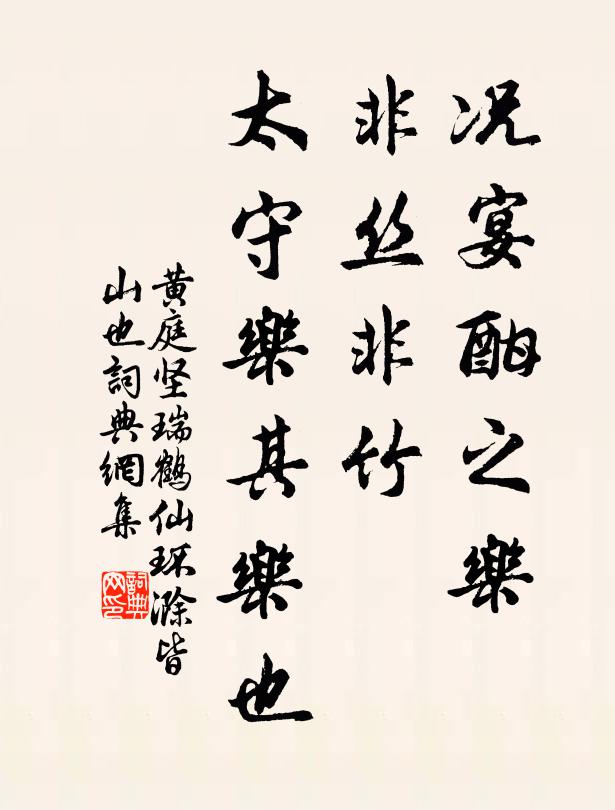 况宴酣之樂
非丝非竹
太守樂其樂也
黄庭坚瑞鶴仙环滁皆
山也詞典網集
詞典
网印